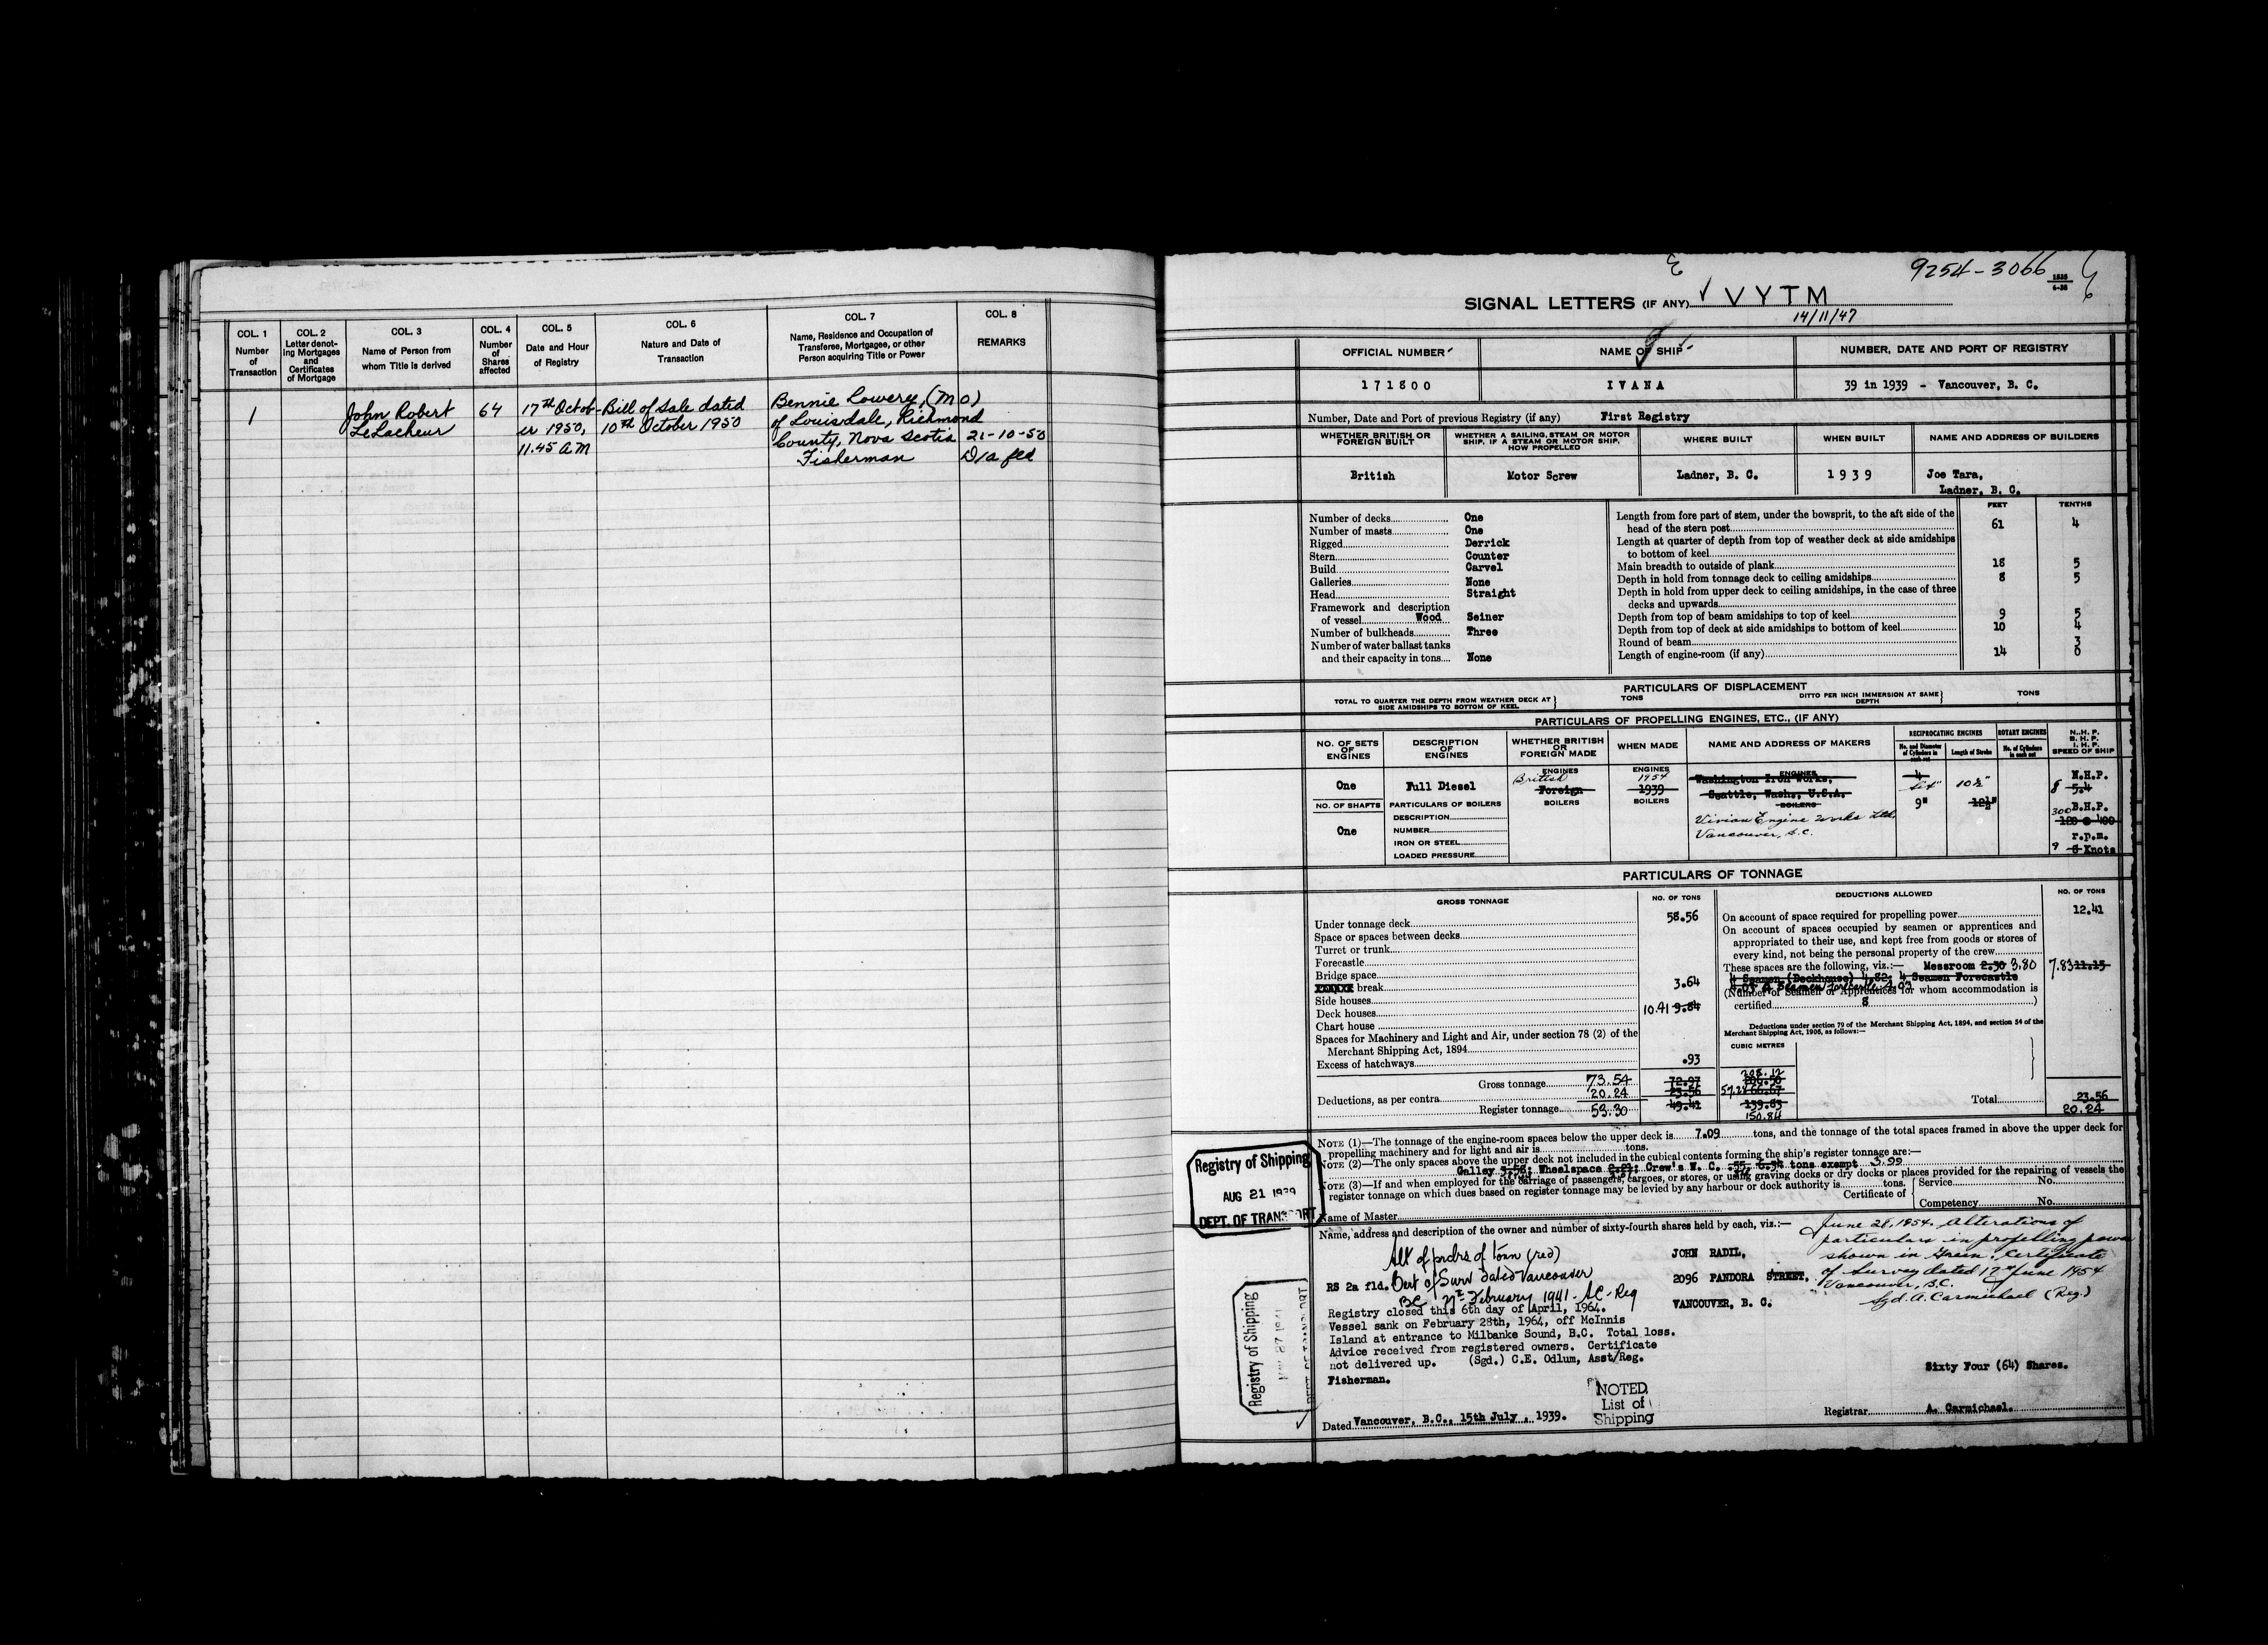 COL. 1
Number
of
Transaction
COL. 2
Letter denot-
ing Mortgages
and
Certificates
of Mortgage
COL. 3
Name of Person from
whom Title is derived
COL. 4
Number
of
Shares
affected
COL. 5
Date and Hour
of Registry
COL. 6
Nature and Date of
Transaction
COL. 7
Name, Residence and Occupation of
Transferee, Mortgagee, or other
Person acquiring Title or Power
COL. 8
REMARKS
1
John Robert
LeLacheur
64
17th Octob-
er 1950,
11.45 AM
Bill of Sale dated
10th October 1950
Bennie Lowery, (MO)
of Louisdale, Richmond
County, Nova Scotia
Fisherman
21-10-50
D/a fld
9254-3066
SIGNAL LETTERS (IF ANY) VYTM
14/11/47
OFFICIAL NUMBER
NAME OF SHIP
NUMBER, DATE AND PORT OF REGISTRY
171800
IVANA
39 in 1939 - Vancouver, B. C.
Number, Date and Port of previous Registry (if any) First Registry
WHETHER BRITISH OR
FOREIGN BUILT
WHETHER A SAILING, STEAM OR MOTOR
SHIP. IF A STEAM OR MOTOR SHIP,
HOW PROPELLED
WHERE BUILT
WHEN BUILT
NAME AND ADDRESS OF BUILDERS
British
Motor Screw
Ladner, B. C.
1939
Joe Tara,
Ladner, B. C.
Number of decks One
Number of masts One
Rigged Derrick
Stern Counter
Build Carvel
Galleries None
Head Straight
Framework and description
of vessel Wood Seiner
Number of bulkheads Three
Number of water ballast tanks
and their capacity in tons None
FEET
TENTHS
Length from fore part of stem, under the bowsprit, to the aft side of the
head of the stern post 61 4
Length at quarter of depth from top of weather deck at side amidships
to bottom of keel
Main breadth to outside of plank 18 5
Depth in hold from tonnage deck to ceiling amidships 8 5
Depth in hold from upper deck to ceiling amidships, in the case of three
decks and upwards
Depth from top of beam amidships to top of keel 9 5
Depth from top of deck at side amidships to bottom of keel 10 4
Round of beam 3
Length of engine-room (if any) 14 0
PARTICULARS OF DISPLACEMENT
TOTAL TO QUARTER THE DEPTH FROM WEATHER DECK AT
SIDE AMIDSHIPS TO BOTTOM OF KEEL
TONS
DITTO PER INCH IMMERSION AT SAME
DEPTH
TONS
PARTICULARS OF PROPELLING ENGINES, ETC., (IF ANY)
NO. OF SETS
OF
ENGINES
DESCRIPTION
OF
ENGINES
WHETHER BRITISH
OR
FOREIGN MADE
WHEN MADE
NAME AND ADDRESS OF MAKERS
RECIPROCATING ENGINES
No. and Diameter
of Cylinders in
each set
Length of Stroke
ROTARY ENGINES
No. of Cylinders
in each set
N.H.P.
B.H.P.
I.H.P.
SPEED OF SHIP
One
Full Diesel
ENGINES
British
Foreign
BOILERS
ENGINES
1954
1939
BOILERS
ENGINES
Washington Iron Works,
Seattle, Wash., U.S.A.
BOILERS
Vivian Engine Works Ltd.
Vancouver, B.C.
4
Six
9"
10½"
12½"
N.H.P.
8 5.4
B.H.P.
300
120 @ 400
r.p.m.
9 8 Knots
NO. OF SHAFTS
One
PARTICULARS OF BOILERS
DESCRIPTION
NUMBER
IRON OR STEEL
LOADED PRESSURE
PARTICULARS OF TONNAGE
GROSS TONNAGE
NO. OF TONS
Under tonnage deck 58.56
Space or spaces between decks
Turret or trunk
Forecastle
Bridge space
break 3.64
Side houses
Deck houses 10.41 9.84
Chart house
Spaces for Machinery and Light and Air, under section 78 (2) of the
Merchant Shipping Act, 1894
Excess of hatchways .93
Gross tonnage 73.54 72.97 208.12 206.50
Deductions, as per contra 20.24 23.56 57.28 66.67
Register tonnage 53.30 49.41 139.83
150.84
DEDUCTIONS ALLOWED
NO. OF TONS
On account of space required for propelling power 12.41
On account of spaces occupied by seamen or apprentices and
appropriated to their use, and kept free from goods or stores of
every kind, not being the personal property of the crew
These spaces are the following, viz.:— Messroom 2.30 3.80 7.83 11.15
4 Seamen (Deckhouse) 4.82; 4 Seamen Forecastle
(Number of Seamen or Apprentices for whom accommodation is
certified 8 )
Deductions under section 79 of the Merchant Shipping Act, 1894, and section 54 of the
Merchant Shipping Act, 1906, as follows:—
CUBIC METRES
Total 23.56
20.24
NOTE (1)—The tonnage of the engine-room spaces below the upper deck is 7.09 tons, and the tonnage of the total spaces framed in above the upper deck for
propelling machinery and for light and air is tons.
NOTE (2)—The only spaces above the upper deck not included in the cubical contents forming the ship's register tonnage are:—
Galley Wheelspace Crew's W. C. .55 6.34 tons exempt 3.99
NOTE (3)—If and when employed for the carriage of passengers, cargoes, or stores, or using graving docks or dry docks or places provided for the repairing of vessels the
register tonnage on which dues based on register tonnage may be levied by any harbour or dock authority is tons.
Certificate of
Service No.
Competency No.
Name of Master
Registry of Shipping
AUG 21 1939
DEPT. OF TRANSPORT
Name, address and description of the owner and number of sixty-fourth shares held by each, viz.:—
Alt of prdrs of tonn (red)
RS 2a fld. Cert of Surv dated Vancouver
BC February 1941 - AC - Reg
JOHN RADIL,
2096 PANDORA STREET,
VANCOUVER, B. C.
June 28, 1954. Alterations of
particulars in propelling power
shown in Green. Certificate
of Survey dated 17th June 1954
Vancouver, B.C.
Sgd. A. Carmichael (Reg.)
Registry closed this 6th day of April, 1964.
Vessel sank on February 28th, 1964, off McInnis
Island at entrance to Milbanke Sound, B.C. Total loss.
Advice received from registered owners. Certificate
not delivered up. (Sgd.) C.E. Odlum, Asst/Reg.
Fisherman.
Sixty Four (64) Shares.
Registry of Shipping
NOTED
List of
Shipping
Dated Vancouver, B.C., 15th July, 1939.
Registrar A. Carmichael.